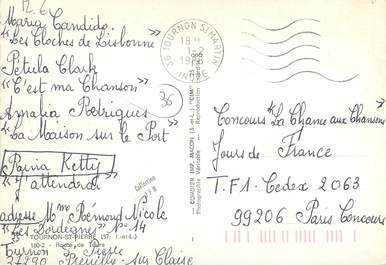 12.6
Maria Candido
"Les Cloches de Lisbonne"
Petula Clark
"C'est ma Chanson"
Amalia Rodrigues
"La Maison sur le Port"
Rina Ketty
"J'attendrai"
adresse Mme Rémond Nicole
"Les Bordegnes" N° 14
TOURNON-ST-PIERRE (37. I.-et-L.)
180-2 - Route de Tours
Tournon St Pierre
37290 Preuilly-sur-Claise
36 TOURNON ST MARTIN
18 H
1-2
INDRE
36
COMBIER IMP. MACON (S.-et-L.) "CIM"
Photographie Véritable - Reproduction
Collection
Concours "La Chance aux Chansons"
Jours de France
T.F1. Cedex 2063
99206 Paris Concours